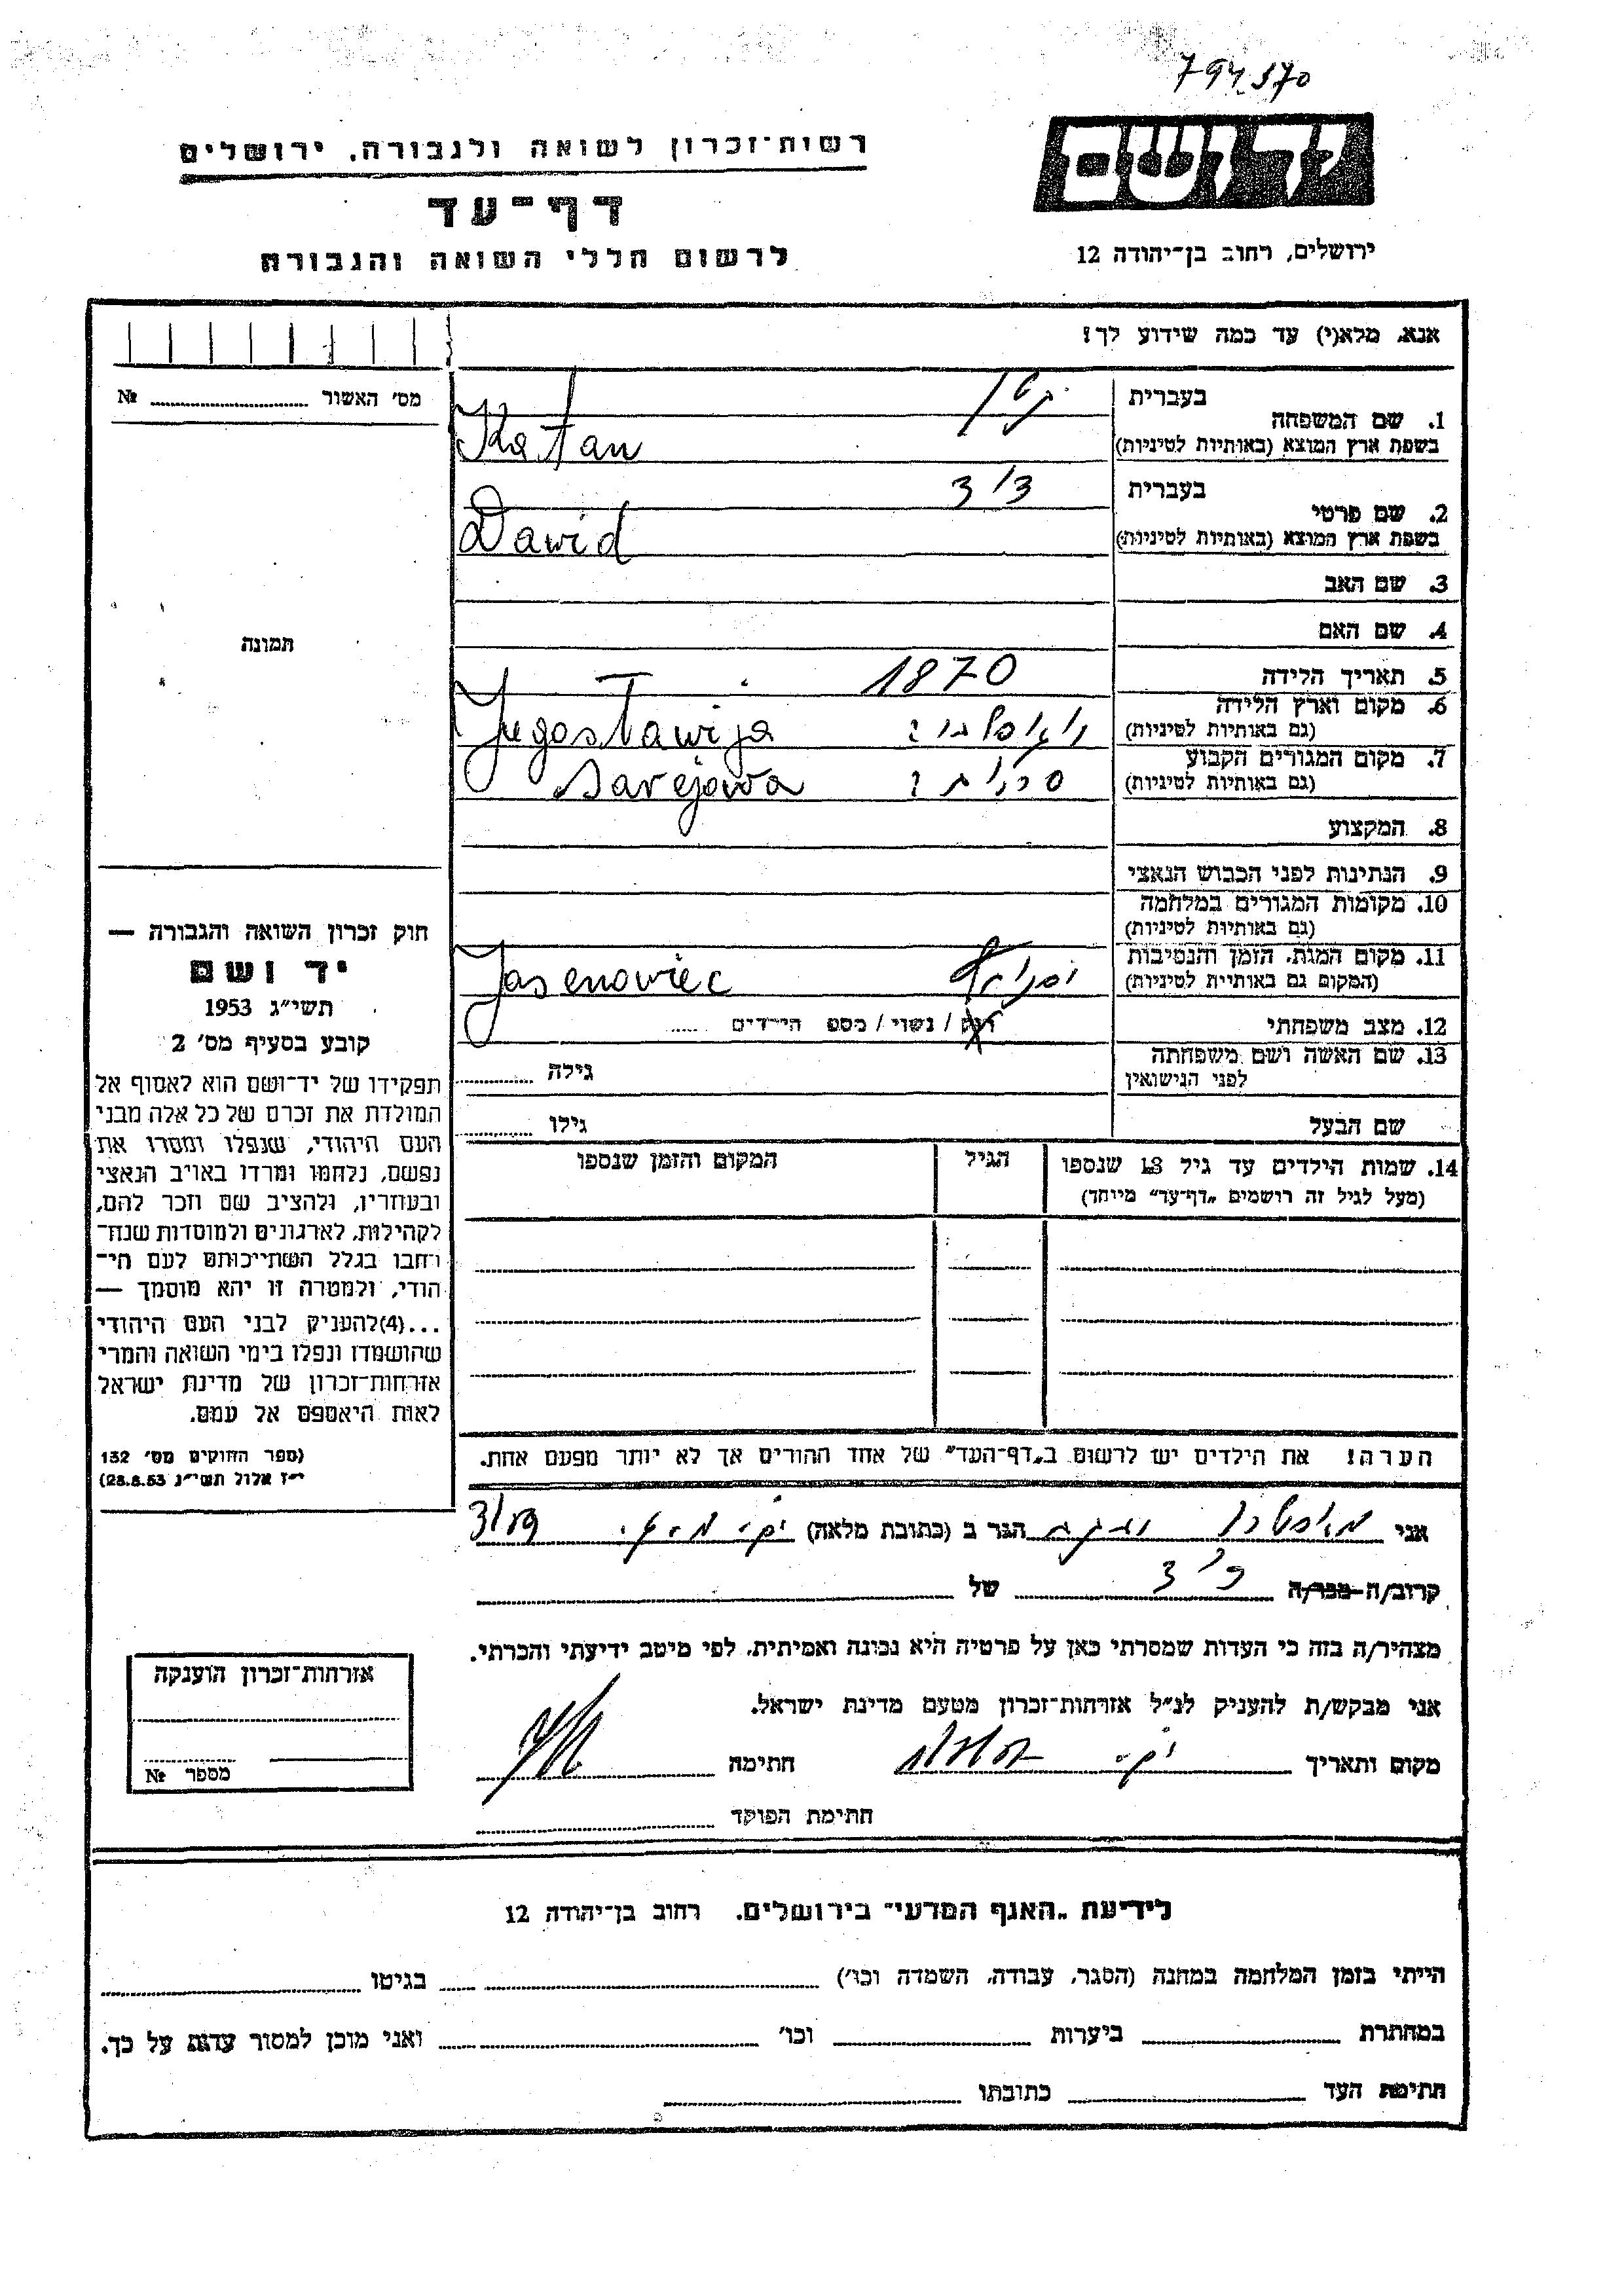 794370
יד ושם
רשות־זכרון לשואה ולגבורה, ירושלים
דף־עד
לרשום חללי השואה והגבורה
ירושלים, רחוב בן־יהודה 12
אנא, מלא(י) עד כמה שידוע לך!
מס׳ האשור № ........
1. שם המשפחה
בעברית קטן
בשפת ארץ המוצא (באותיות לטיניות) Katan
2. שם פרטי
בעברית דוד
בשפת ארץ המוצא (באותיות לטיניות) Dawid
3. שם האב
4. שם האם
תמונה
5. תאריך הלידה 1870
6. מקום וארץ הלידה
(גם באותיות לטיניות) Jugoslawija
7. מקום המגורים הקבוע
(גם באותיות לטיניות) Sarejowa
8. המקצוע
9. הנתינות לפני הכבוש הנאצי
10. מקומות המגורים במלחמה
(גם באותיות לטיניות)
11. מקום המות, הזמן והנסיבות
(המקום גם באותיות לטיניות) Jasenowiec
12. מצב משפחתי רוק / נשוי / מספ הילדים .....
13. שם האשה ושם משפחתה
לפני הנישואין גילה
שם הבעל גילו
14. שמות הילדים עד גיל 18 שנספו הגיל המקום והזמן שנספו
(מעל לגיל זה רושמים „דף־עד״ מיוחד)
חוק זכרון השואה והגבורה —
יד ושם
תשי״ג 1953
קובע בסעיף מס׳ 2
תפקידו של יד־ושם הוא לאסוף אל
המולדת את זכרם של כל אלה מבני
העם היהודי, שנפלו ומסרו את
נפשם, נלחמו ומרדו באויב הנאצי
ובעוזריו, ולהציב שם וזכר להם,
לקהילות, לארגונים ולמוסדות שנח־
רבו בגלל השתייכותם לעם הי־
הודי, ולמטרה זו יהא מוסמך —
...(4)להעניק לבני העם היהודי
שהושמדו ונפלו בימי השואה והמרי
אזרחות־זכרון של מדינת ישראל
לאות היאספם אל עמם.
(ספר החוקים מס׳ 132
י״ז אלול תשי״ג 28.8.53)
הערה! את הילדים יש לרשום ב„דף־העד״ של אחד ההורים אך לא יותר מפעם אחת.
אני הגר ב (כתובת מלאה)
קרוב/ה מכר/ה של
מצהיר/ה בזה כי העדות שמסרתי כאן על פרטיה היא נכונה ואמיתית, לפי מיטב ידיעתי והכרתי.
אני מבקש/ת להעניק לנ״ל אזרחות־זכרון מטעם מדינת ישראל.
מקום ותאריך חתימה
חתימת הפוקד
אזרחות־זכרון הוענקה
מספר №
לידיעת „האגף המדעי״ בירושלים, רחוב בן־יהודה 12
הייתי בזמן המלחמה במחנה (הסגר, עבודה, השמדה וכו׳) בגיטו
במחתרת ביערות וכו׳ ואני מוכן למסור עדות על כך.
חתימת העד כתובתו